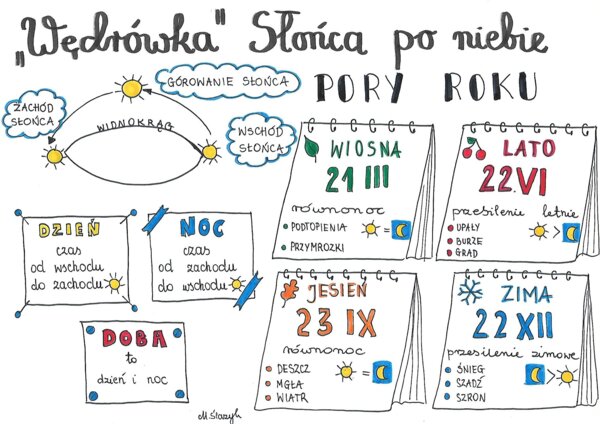 „Wędrówka" Słońca po niebie
GÓROWANIE SŁOŃCA
ZACHÓD
SŁOŃCA
WIDNOKRĄG
WSCHÓD
SŁOŃCA
DZIEŃ
czas
od wschodu
do zachodu
NOC
czas
od zachodu
do wschodu
DOBA
to
dzień i noc
PORY ROKU
WIOSNA
21 III
równonoc
PODTOPIENIA
PRZYMROZKI
=
LATO
22.VI
przesilenie letnie
UPAŁY
BURZE
GRAD
>
JESIEŃ
23 IX
równonoc
DESZCZ
MGŁA
WIATR
=
ZIMA
22 XII
przesilenie zimowe
ŚNIEG
SZADŹ
SZRON
>